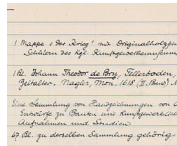 1 Mappe "Der Krieg" mit Originalholzsch
Schülern der Kgl. Kunstgewerbe
1 Bl. Johann Theodor de Bry, Tellerboden
Nagler, Mon.
Eine Sammlung von Handzeichnungen von
Entwürfe zu Bauten und kunstgewerbl
Aufnahmen und Studien
67 Bl. zu derselben Sammlung gehörig